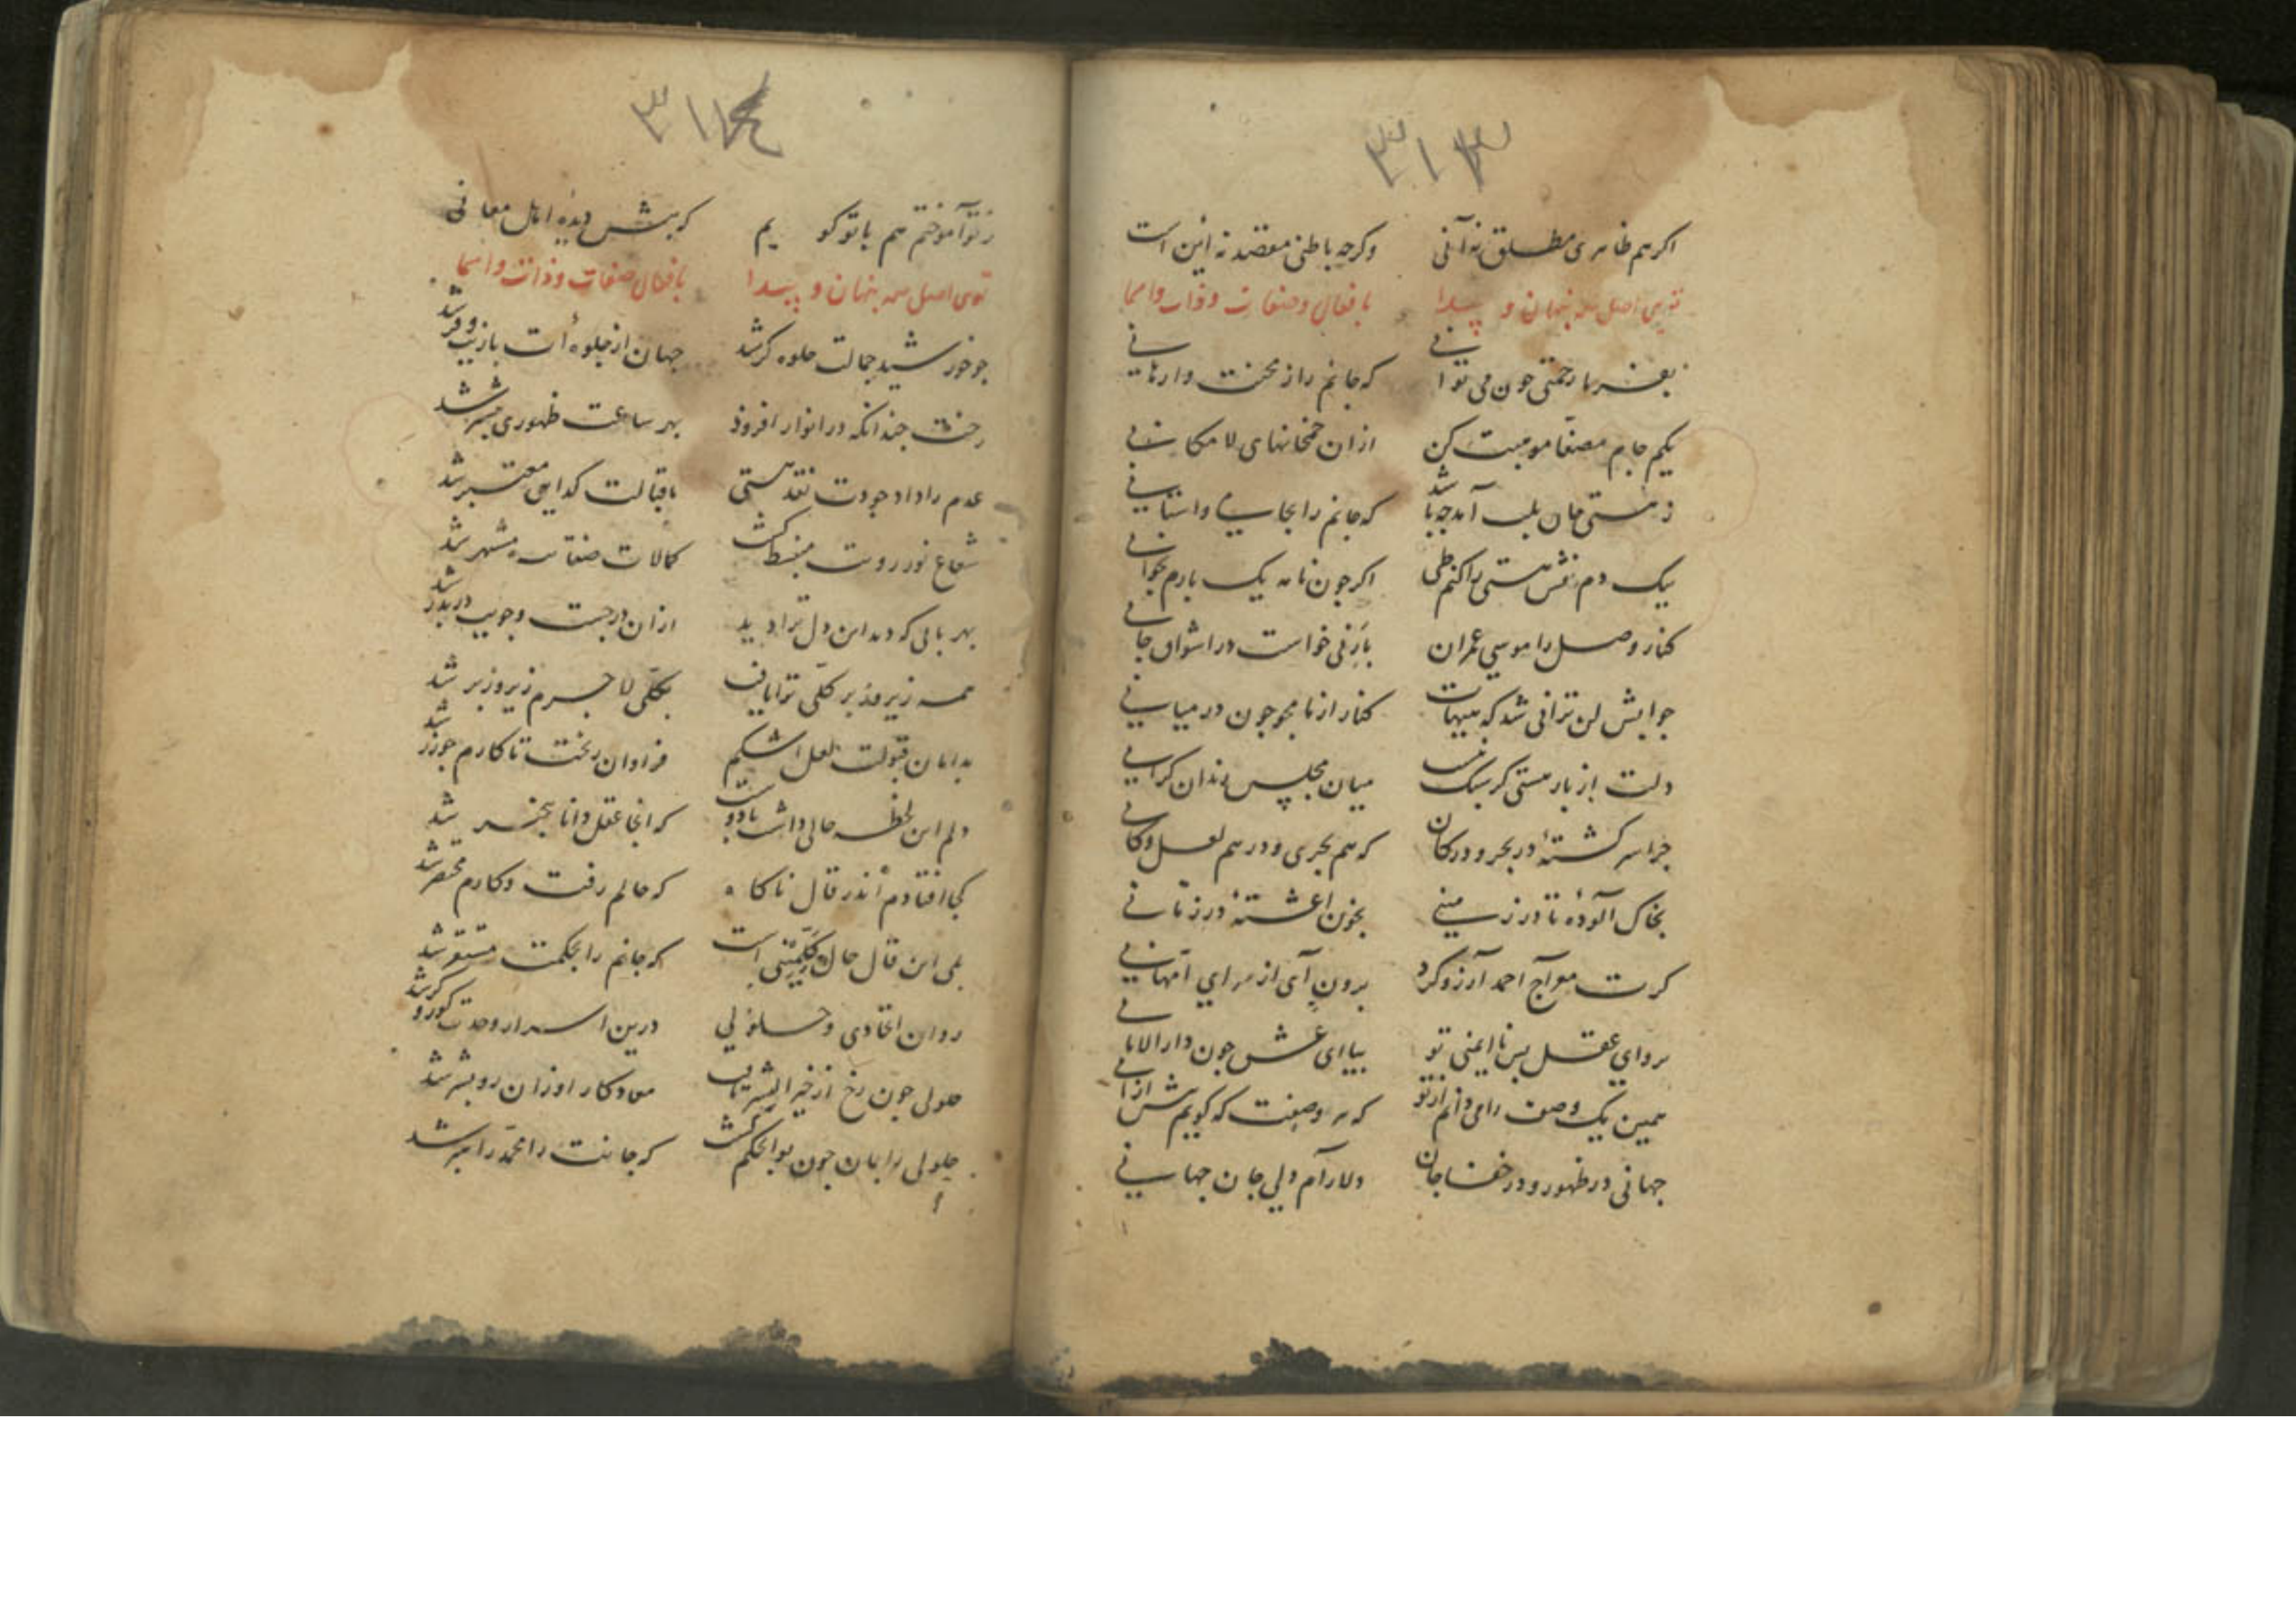 ۳۱۳
اکر هم ظاهری مطلق نه آنی وکرچه باطنی مقصد نه این است
توی اصل همه پنهان و پیدا بافعال و صفات و ذات و اسما
بفرما رحمتی چون می توانی که جانم را از محنت وارهانی
یکم جام مصفا موهبت کن ازان خمخانهای لامکانی
ز هستی جان بلب آمد چه باشد که جانم را بجا نی واستانی
بیک دم نقش هستی را کنم طی اکر چون نامه یک بارم بخوانی
کنار وصل را موسی عمران بارنی خواست در اشواق جانی
جوابش لن ترانی شد که هیهات کنار از ما مجو چون در میانی
دلت از بار هستی کر سبک نیست میان مجلس رندان کرانی
چرا سر کشتهٔ در بحر و در کان که هم بحری و در هم لعل و کانی
بخاک آلودهٔ تا در زمینی بخون اغشتهٔ در زمانی
کرت معراج احمد آرزو کرد برون آی از سرای امهانی
برو ای عقل بس ناایمنی تو بیا ای عشق چون دار الامانی
همین یک وصف را می دانم از تو که هر وصفت که کویم بیش ازانی
جهانی در ظهور و در خفا جان دلارام دلی جان جهانی
۳۱۴
ز تو آموختم هم با تو کویم که بینش دیدهٔ اهل معانی
توی اصل همه پنهان و پیدا بافعال صفات و ذات و اسما
چو خورشید جمالت جلوه کر شد جهان از جلوه أت با زیب و فر شد
رخت چندانکه در انوار افزود بهر ساعت ظهوری بیشتر شد
عدم را داد جودت نقد هستی باقبالت کدایی معتبر شد
شعاع نور رویت منبسط کشت کمالات صفاتت مشتهر شد
بهر بابی که دید این دل ترا دید ازان در جست وجویت در بدر شد
همه زیر و زبر کلی ترا یافت بکلی لاجرم زیر و زبر شد
بدامان قبولت لعل اشکم فراوان ریخت تا کارم چو زر شد
دلم این لحظه حالی داشت با دوست که انجا عقل دانا بیخبر شد
کجا افتادم اندر قال ناکاه که حالم رفت و کارم مختصر شد
بلی این قال حال است که جانم را بحکمت مستقر شد
روان اتحادی و حلولی درین اسرار وحدت کور و کر شد
حلولی چون رخ از خیر البشر تافت معاد کار او زان رو بشر شد
حلولی را بمان چون بوالحکم کشت که جانت را محمد راهبر شد